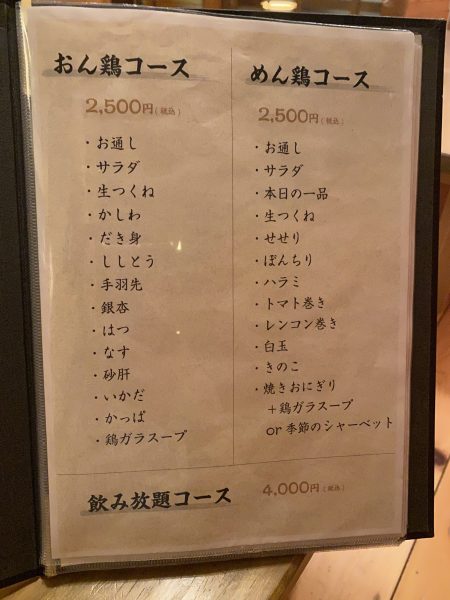 おん鶏コース
2,500円(税込)
・お通し
・サラダ
・生つくね
・かしわ
・だき身
・ししとう
・手羽先
・銀杏
・はつ
・なす
・砂肝
・いかだ
・かっぱ
・鶏ガラスープ
めん鶏コース
2,500円(税込)
・お通し
・サラダ
・本日の一品
・生つくね
・せせり
・ぽんちり
・ハラミ
・トマト巻き
・レンコン巻き
・白玉
・きのこ
・焼きおにぎり
＋鶏ガラスープ
or 季節のシャーベット
飲み放題コース 4,000円(税込)